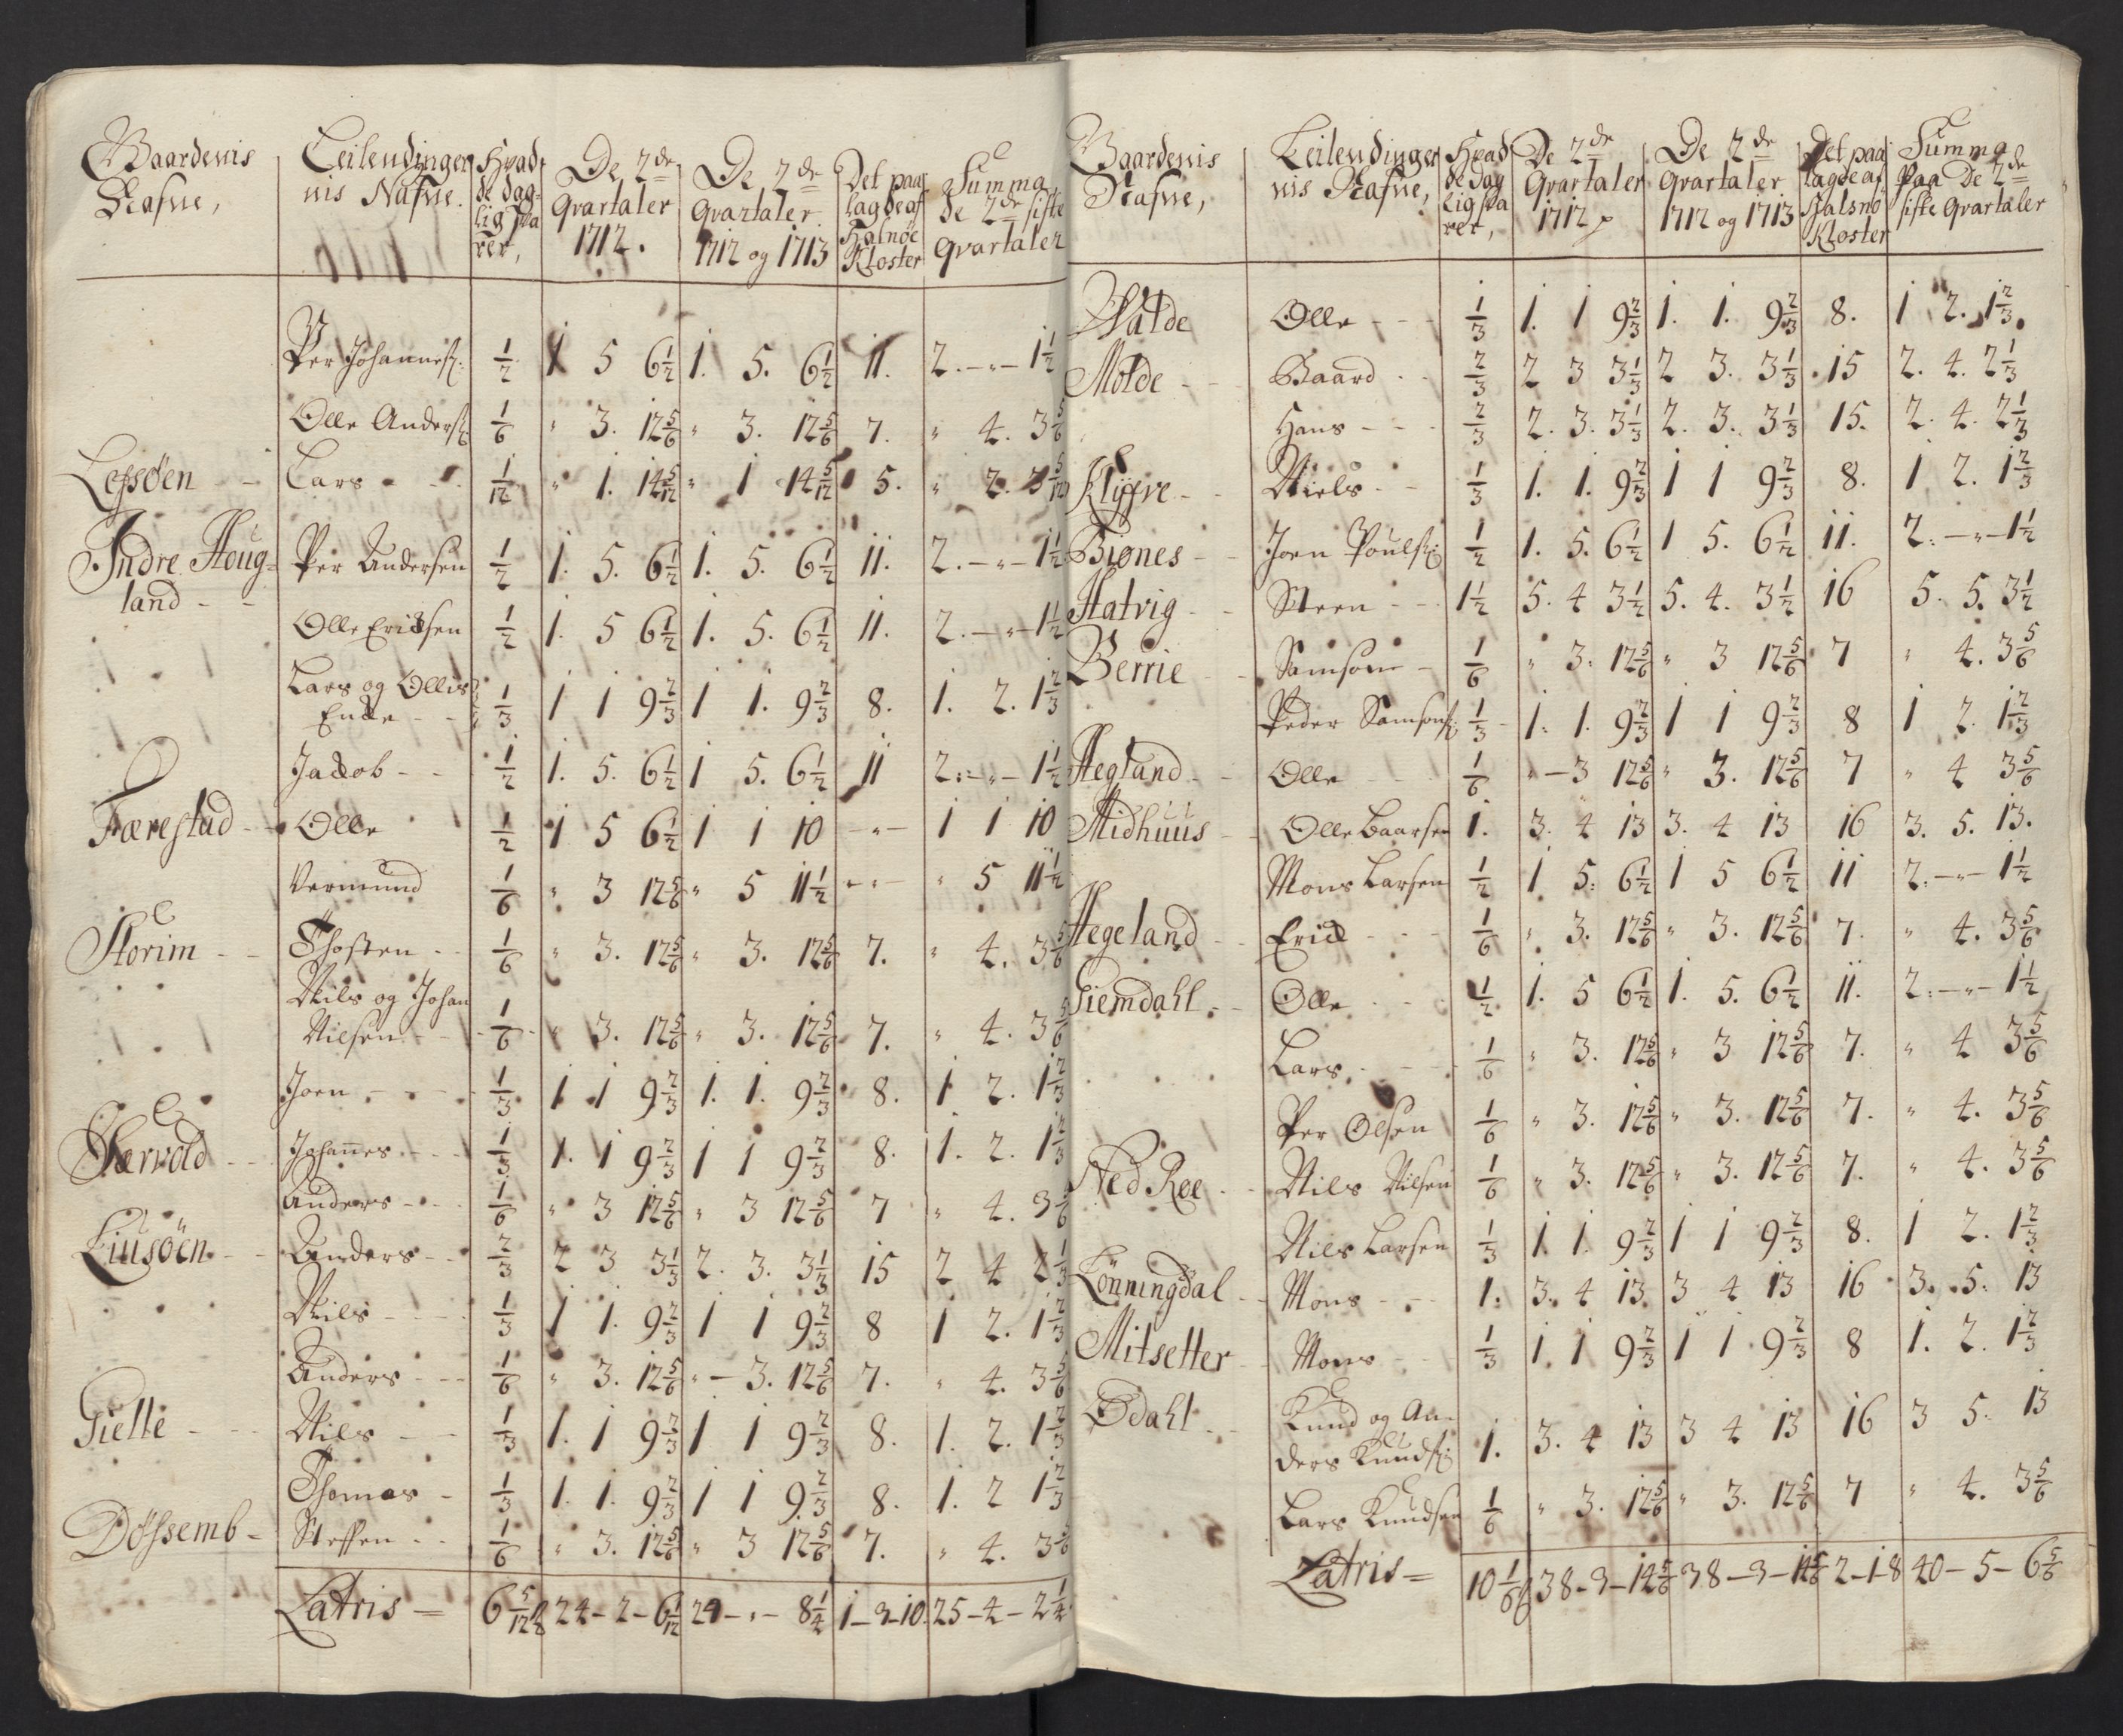 Gaardenis Nafne, Leilendinger nis Nafne. Hvad de dag lig sva rer, De 2de Qvartaler 1712. De 2de Qvartaler 1712 og 1713 Det paa lagde af Halsnöe Kloster Summa de 2de siste Qvartaler
Per Johannesen 1/2 1 5 6 1/2 1. 5. 6 1/2 11. 2. - " - 1 1/2
Olle Anders. 1/6 " 3. 12 5/6 " 3. 12 5/6 7. " 4. 3 5/6
Lessöen - - Lars - - 1/12 " 1. 14 5/12 " 1 14 5/12 5. " 2. 3 5/12
Indre Houg= Per Andersen 1/2 1. 5. 6 1/2 1. 5. 6 1/2 11. 2. - " - 1 1/2
land - -
Olle Ericksen 1/2 1. 5 6 1/2 1. 5. 6 1/2 11. 2. - " - 1 1/2
Lars og Ollis
Encke - - 1/3 1 1 9 2/3 1 1. 9 2/3 8. 1. 2. 1 2/3
Jackob - - 1/2 1. 5. 6 1/2 1 5. 6 1/2 11 2. - " - 1 1/2
Færestad - - Olle 1/2 1 5 6 1/2 1 1 10 - " - 1 1 10
Vermund 1/6 " 3 12 5/6 " 5 11 1/2 - " - " 5 11 1/2
Storim - - Thosten - - 1/6 " 3. 12 5/6 " 3. 12 5/6 7. " 4. 3 5/6
Nils og Johan
Nilsen - - 1/6 " 3. 12 5/6 " 3. 12 5/6 7. " 4. 3 5/6
Joen - - - 1/3 1 1 9 2/3 1. 1. 9 2/3 8. 1 2. 1 2/3
Særvold - - Johannes - - 1/3 1. 1 9 2/3 1 1 9 2/3 8. 1. 2. 1 2/3
Anders - - 1/6 " 3 12 5/6 " 3 12 5/6 7 " 4. 3 5/6
Liusöen - - Anders - - 2/3 2 3 3 1/3 2. 3. 3 1/3 15 2 4 2 1/3
Nils - - - 1/3 1 1. 9 2/3 1 1 9 2/3 8 1 2. 1 2/3
Anders - - 1/6 " 3. 12 5/6 " - 3. 12 5/6 7. " 4. 3 5/6
Gielle - - Nils - - 1/3 1. 1 9 2/3 1 1 9 2/3 8. 1. 2. 1 2/3
Thomas - 1/3 1. 1. 9 2/3 1 1 9 2/3 8. 1. 2 1 2/3
Dössemb - Steffen - - 1/6 " 3. 12 5/6 " 3 12 5/6 7. " 4. 3 5/6
Latris = 6 5/12 24 - 2 - 6 1/12 24 - " - 8 1/4 1 - 3 - 10. 25 - 4 - 2 1/4
Gaardenis Nafne, Leilendinger nis Nafne, Hvad de dag lig sva rer, De 2de Qvartaler 1712 De 2de Qvartaler 1712 og 1713 Det paa lagde af Halsnö Kloster Summa paa De 2de siste Qvartaler
Valde Olle - - 1/3 1. 1 9 2/3 1. 1. 9 2/3 8. 1 2. 1 2/3
Molde - - Baard - - 2/3 2 3 3 1/3 2 3. 3 1/3 15 2. 4. 2 1/3
Hans - - 2/3 2. 3. 3 1/3 2. 3. 3 1/3 15. 2. 4. 2 1/3
Klyfve - - Niels - - 1/3 1. 1. 9 2/3 1 1 9 2/3 8. 1 2. 1 2/3
Biønes - - Joen Pouls. 1/2 1. 5. 6 1/2 1 5. 6 1/2 11. 2. - " - 1 1/2
Hatvig - - Steen - - 1 1/2 5. 4 3 1/2 5. 4. 3 1/2 16 5. 5. 3 1/2
Berrie - - Samson - 1/6 " 3. 12 5/6 " 3 12 5/6 7 " 4. 3 5/6
Peder Samsons. 1/3 1. 1. 9 2/3 1 1 9 2/3 8 1 2. 1 2/3
Hegland - - Olle 1/6 " - 3 12 5/6 " 3. 12 5/6 7 " 4 3 5/6
Midhuus - - Olle Baarsen 1. 3. 4 13 3. 4 13 16 3. 5. 13.
Mons Larsen 1/2 1 5. 6 1/2 1 5 6 1/2 11 2. - " - 1 1/2
Hegeland - - Erick - - 1/6 " 3. 12 5/6 " 3. 12 5/6 7. " 4. 3 5/6
Giemdahl - - Olle - - 1/2 1. 5 6 1/2 1. 5. 6 1/2 11. 2. - " - 1 1/2
Lars - - 1/6 " 3. 12 5/6 " 3 12 5/6 7. " 4 3 5/6
Per Olsen 1/6 " 3. 12 5/6 " 3. 12 5/6 7. " 4. 3 5/6
Ned Røe - - Nils Nilsen 1/6 " 3. 12 5/6 " 3. 12 5/6 7. " 4. 3 5/6
Nils Larsen 1/3 1. 1. 9 2/3 1 1 9 2/3 8. 1 2. 1 2/3
Lönningdal - - Mons - - 1. 3. 4 13. 3 4 13 16 3. 5. 13
Mitsetter - - Mons - - 1/3 1. 1 9 2/3 1 1 9 2/3 8 1. 2. 1 2/3
Ødahl - - Knud og An-
ders Knuds. 1. 3. 4 13 3 4 13 16 3 5. 13
Lars Knudsen 1/6 " 3. 12 5/6 " 3. 12 5/6 7 " 4. 3 5/6
Latris = 10 1/6 38 - 3 - 14 5/6 38 - 3 - 14 5/6 2 - 1 - 8 40 - 5 - 6 5/6